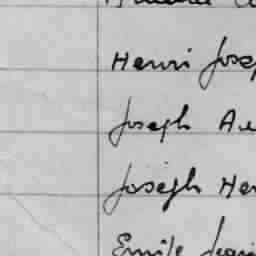 Henri Josep
Joseph Au
Joseph Hen
Emile